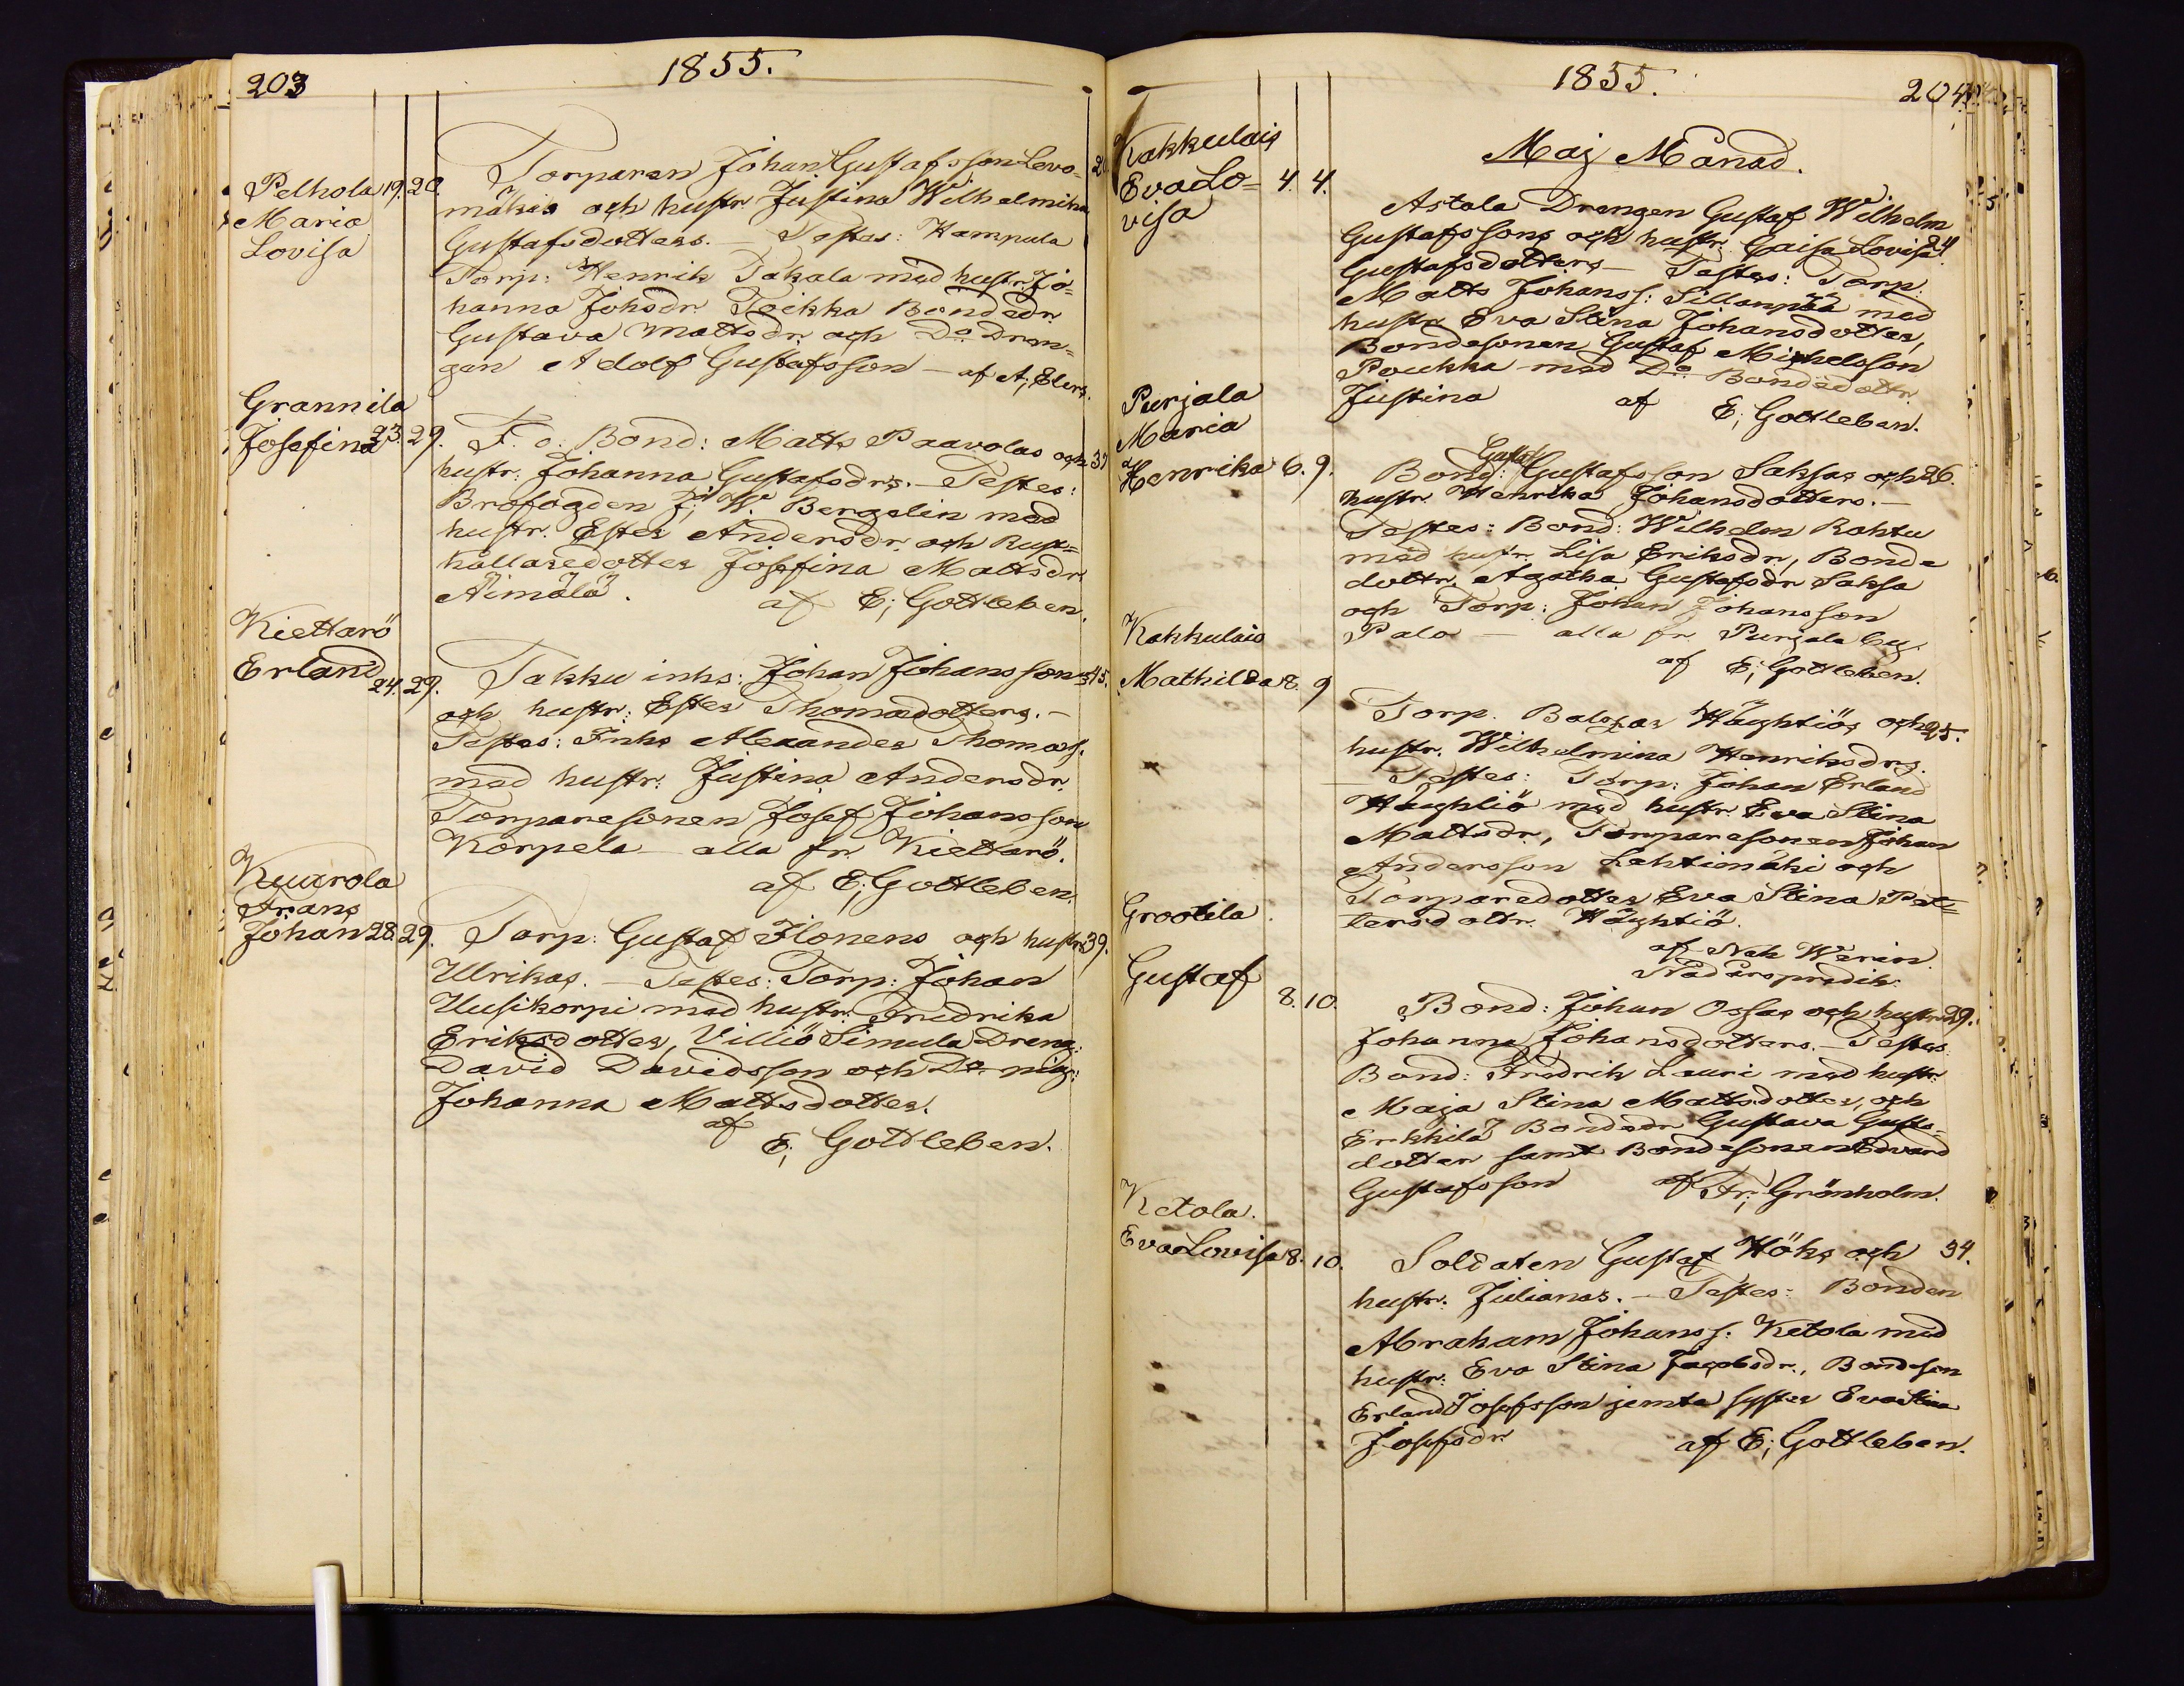 203
1855.
Pelhola 19. 20.
Maria
Lovisa
Torparen Johan Gustafsson Levo=
mäkis och hustr Justina Wilhelmina
Gustafsdotters. Testes: Hampula
Torp: Henrik Takala med hustr. Jo=
hanna Johsdr. Toikka Bondedr.
Gustava Mattsdr. och Do Dren=
gen Adolf Gustafsson – af A; Elers.
Grannila
Josefina 23. 29.
F. o: Bond: Matts Paavolas och 37
hustr: Johanna Gustafsdrs. – Testes:
Brofogden J; W. Bergelin med
hustr. Ester Andersdr. och Rust=
hållaredotter Josefina Mattsdr.
Äimälä. af E; Gottleben.
Kiettarö
Erland 24. 29.
Takku inhs: Johan Johanssons 45.
och hustr: Ester Thomasdotters. –
Testes: Inhs Alexander Thomass.
med hustr: Justina Andersdr.
Torparesonen Josef Johansson
Korpela – alla fr. Kiettarö.
af E; Gottleben.
Kuurola
Frans
Johan 28. 29.
Torp: Gustaf Ilonens och hustr. 39.
Ulrikas. – Testes: Torp: Johan
Uusikorpi med hustr. Fredrika
Eriksdotter, Villiö Simula Dreng:
David Davidsson och Do pig:
Johanna Mattsdotter.
af
E; Gottleben.
1855.
204.
Maj Månad.
Kakkulais
Eva Lo= 4. 4.
visa
Astala Drengen Gustaf Wilhelm
Gustafssons och hustr. Caisa Lovisa 24.
Gustafsdotters – Testes: Torp.
Matts Johanss: Sillanpää med
hustr Eva Stina Johansdotter,
Bondesonen Gustaf Michelsson
Poukka med Do Bondedottr.
Justina af E; Gottleben.
Purjala
Maria
Henrika 6. 9.
Gustaf
Bond: Gustafsson Saksas och 26.
hustr. Henrika Johansdotters. –
Testes: Bond: Wilhelm Rohtu
med hustr. Lisa Eriksdr, Bonde
dottr. Agatha Gustafsdr Saksa
och Torp: Johan Johansson
Palo – alla fr. Purjala by.
af E; Gottleben.
Kakkulais
Mathilda 8. 9
Torp. Balzar Häyhtiös och 25.
hustr. Wilhelmina Henriksdrs.
Testes: Torp: Johan Erland
Häyhtiö med hustr. Eva Stina
Mattsdr., Torparesonen Johan
Andersson Lahtimäki och
Torparedotter Eva Stina Pet=
tersdottr. Häyhtiö.
af Nek Werin.
Nådårspredik.
Grootila
Gustaf 8. 10.
Bond: Johan Ossas och hustr. 29.
Johanna Johansdotters. – Testes:
Bond: Fredrik Lauri med hustr:
Maja Stina Mattsdotter, och
Erkkilä Bondedr Gustava Gusts=
dotter samt Bondesonen Edvard
Gustafsson af Fr; Grönholm.
Ketola.
Eva Lovisa 8. 10.
Soldaten Gustaf Höks och 34.
hustr. Julianas. – Testes: Bonden
Abraham Johanss. Ketola med
hustr: Eva Stina Jacobsdr., Bondeson
Erland Josefsson jemte syster Eva Stina
Josefsdr. af E; Gottleben.